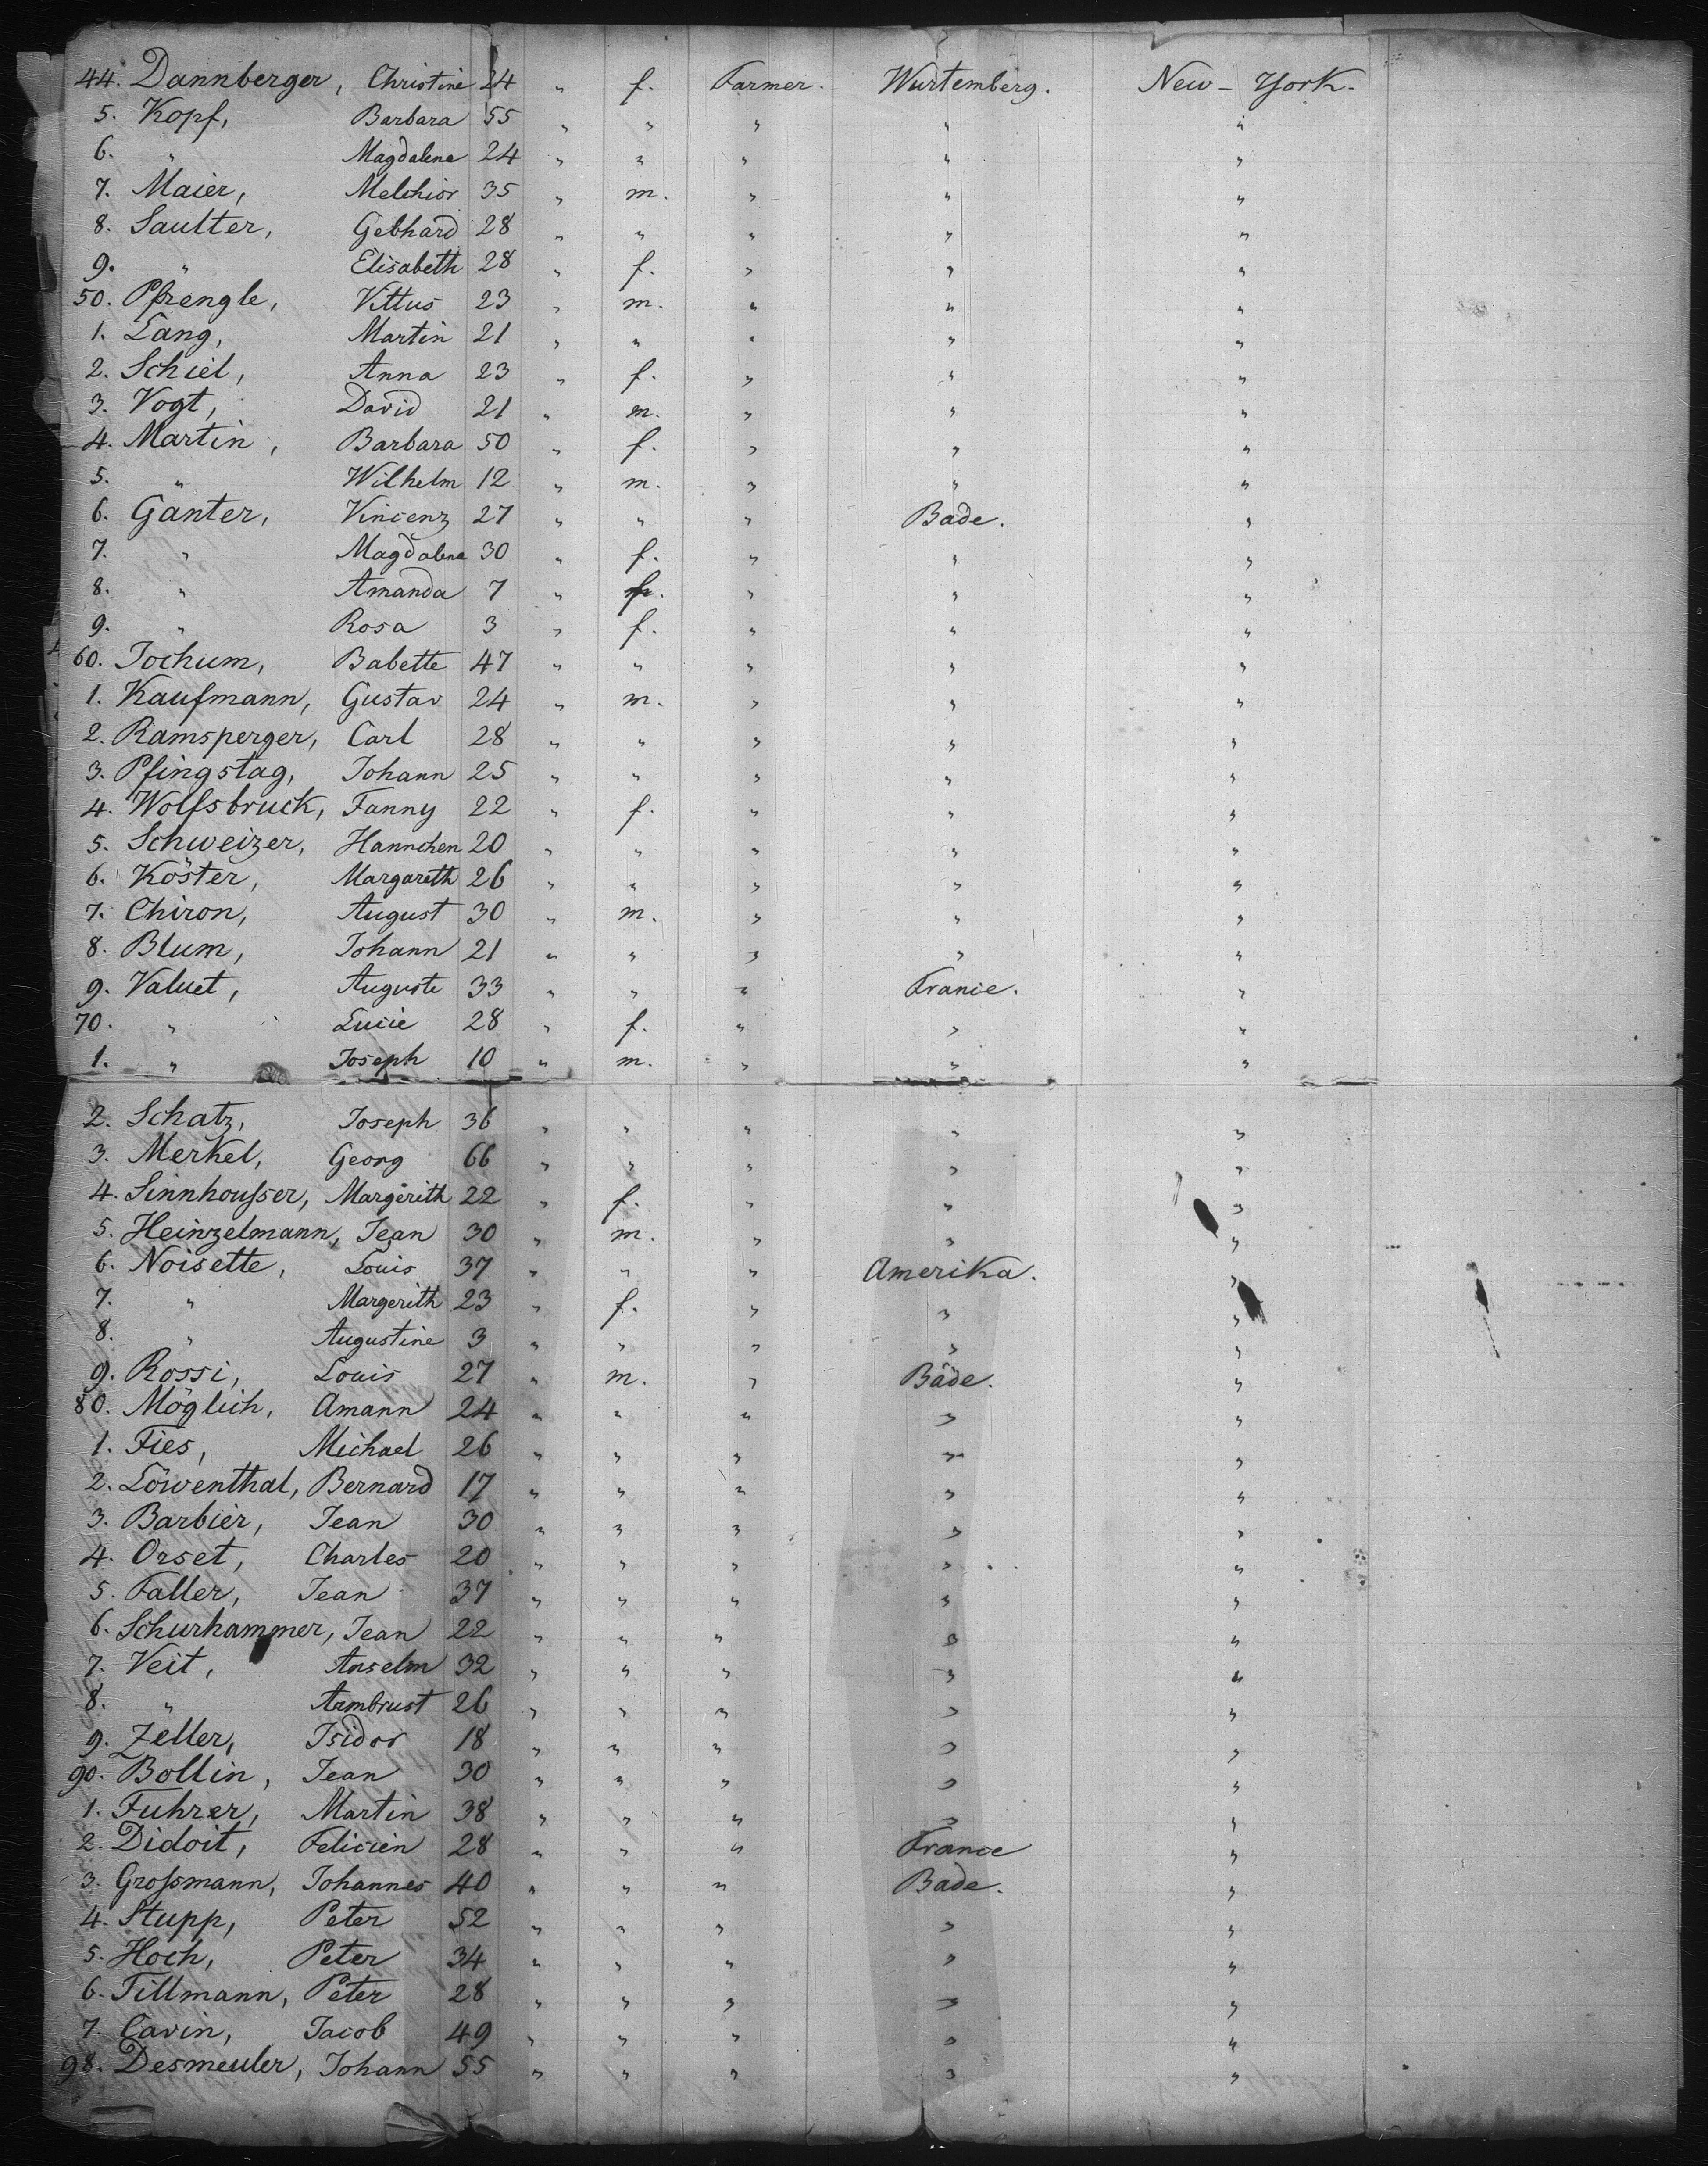 44. Dannberger, Christine 24 " f. Farmer. Wurtemberg. New-York.
5. Kopf, Barbara 55 " " " " "
6. " Magdalena 24 " " " " "
7. Maier, Melchior 35 " m. " " "
8. Saulter, Gebhard 28 " " " " "
9. " Elisabeth 28 " f. " " "
50. Pfrengle, Vittus 23 " m. " " "
1. Lang, Martin 21 " " " " "
2. Schiel, Anna 23 " f. " " "
3. Vogt, David 21 " m. " " "
4. Martin, Barbara 50 " f. " " "
5. " Wilhelm 12 " m. " " "
6. Ganter, Vincenz 27 " " " Bade. "
7. " Magdalena 30 " f. " " "
8. " Amanda 7 " f. " " "
9. " Rosa 3 " f. " " "
60. Jochum, Babette 47 " " " " "
1. Kaufmann, Gustav 24 " m. " " "
2. Ramsperger, Carl 28 " " " " "
3. Pfingstag, Johann 25 " " " " "
4. Wolfsbruck, Fanny 22 " f. " " "
5. Schweizer, Hannchen 20 " " " " "
6. Köster, Margareth 26 " " " " "
7. Chiron, August 30 " m. " " "
8. Blum, Johann 21 " " " " "
9. Valuet, Auguste 33 " " " France. "
70. " Lucie 28 " f. " " "
1. " Joseph 10 " m. " " "
2. Schatz, Joseph 36 " " " " "
3. Merkel, Georg 66 " " " " "
4. Sinnhousser, Margerith 22 " f. " " "
5. Heinzelmann, Jean 30 " m. " " "
6. Noisette, Louis 37 " " " Amerika. "
7. " Margerith 23 " f. " " "
8. " Augustine 3 " " " " "
9. Rossi, Louis 27 " m. " Bade. "
80. Möglich, Amann 24 " " " " "
1. Fies, Michael 26 " " " " "
2. Löwenthal, Bernard 17 " " " " "
3. Barbier, Jean 30 " " " " "
4. Orset, Charles 20 " " " " "
5. Faller, Jean 37 " " " " "
6. Schurhammer, Jean 22 " " " " "
7. Veit, Anselm 32 " " " " "
8. " Armbrust 26 " " " " "
9. Zeller, Isidor 18 " " " " "
90. Bollin, Jean 30 " " " " "
1. Fuhrer, Martin 38 " " " " "
2. Didoit, Felicien 28 " " " France "
3. Grossmann, Johannes 40 " " " Bade. "
4. Stupp, Peter 52 " " " " "
5. Hoch, Peter 34 " " " " "
6. Tillmann, Peter 28 " " " " "
7. Cavin, Jacob 49 " " " " "
98. Desmeuler, Johann 55 " " " " "